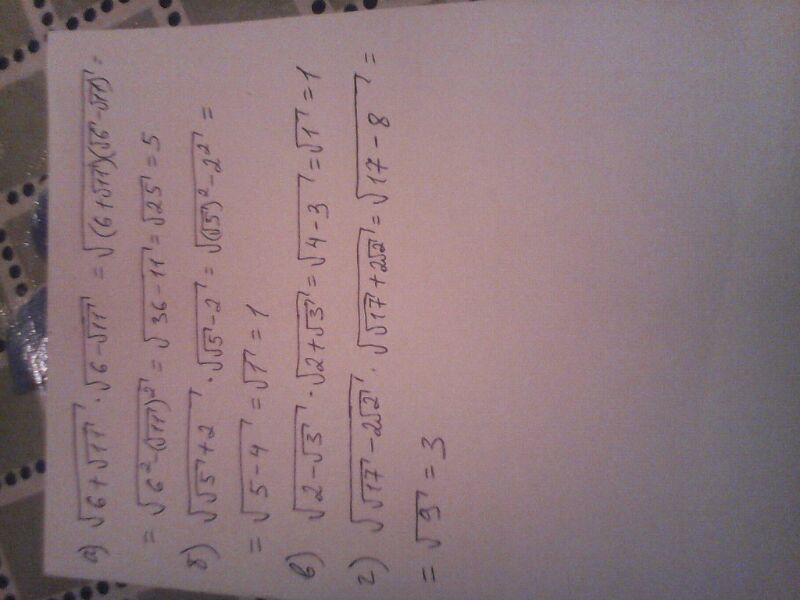 а) √(6+√11) · √(6-√11) = √((6+√11)(√6-√11)) =
= √(6²-(√11)²) = √(36-11) = √25 = 5
б) √(√5+2) · √(√5-2) = √((√5)²-2²) =
= √(5-4) = √1 = 1
в) √(2-√3) · √(2+√3) = √(4-3) = √1 = 1
г) √(√17-2√2) · √(√17+2√2) = √(17-8) =
= √9 = 3